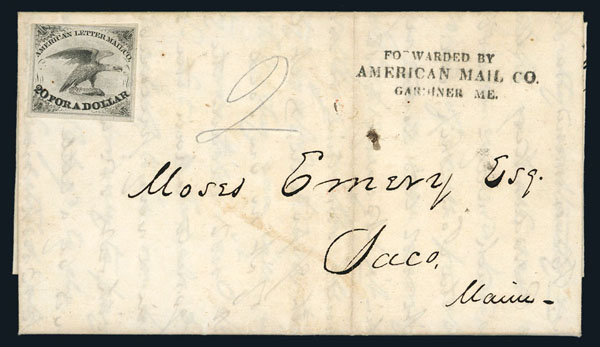 AMERICAN LETTER MAIL CO.
20 FOR A DOLLAR
FORWARDED BY
AMERICAN MAIL CO.
GARDINER ME.
2
Moses Emery Esq.
Saco.
Maine -